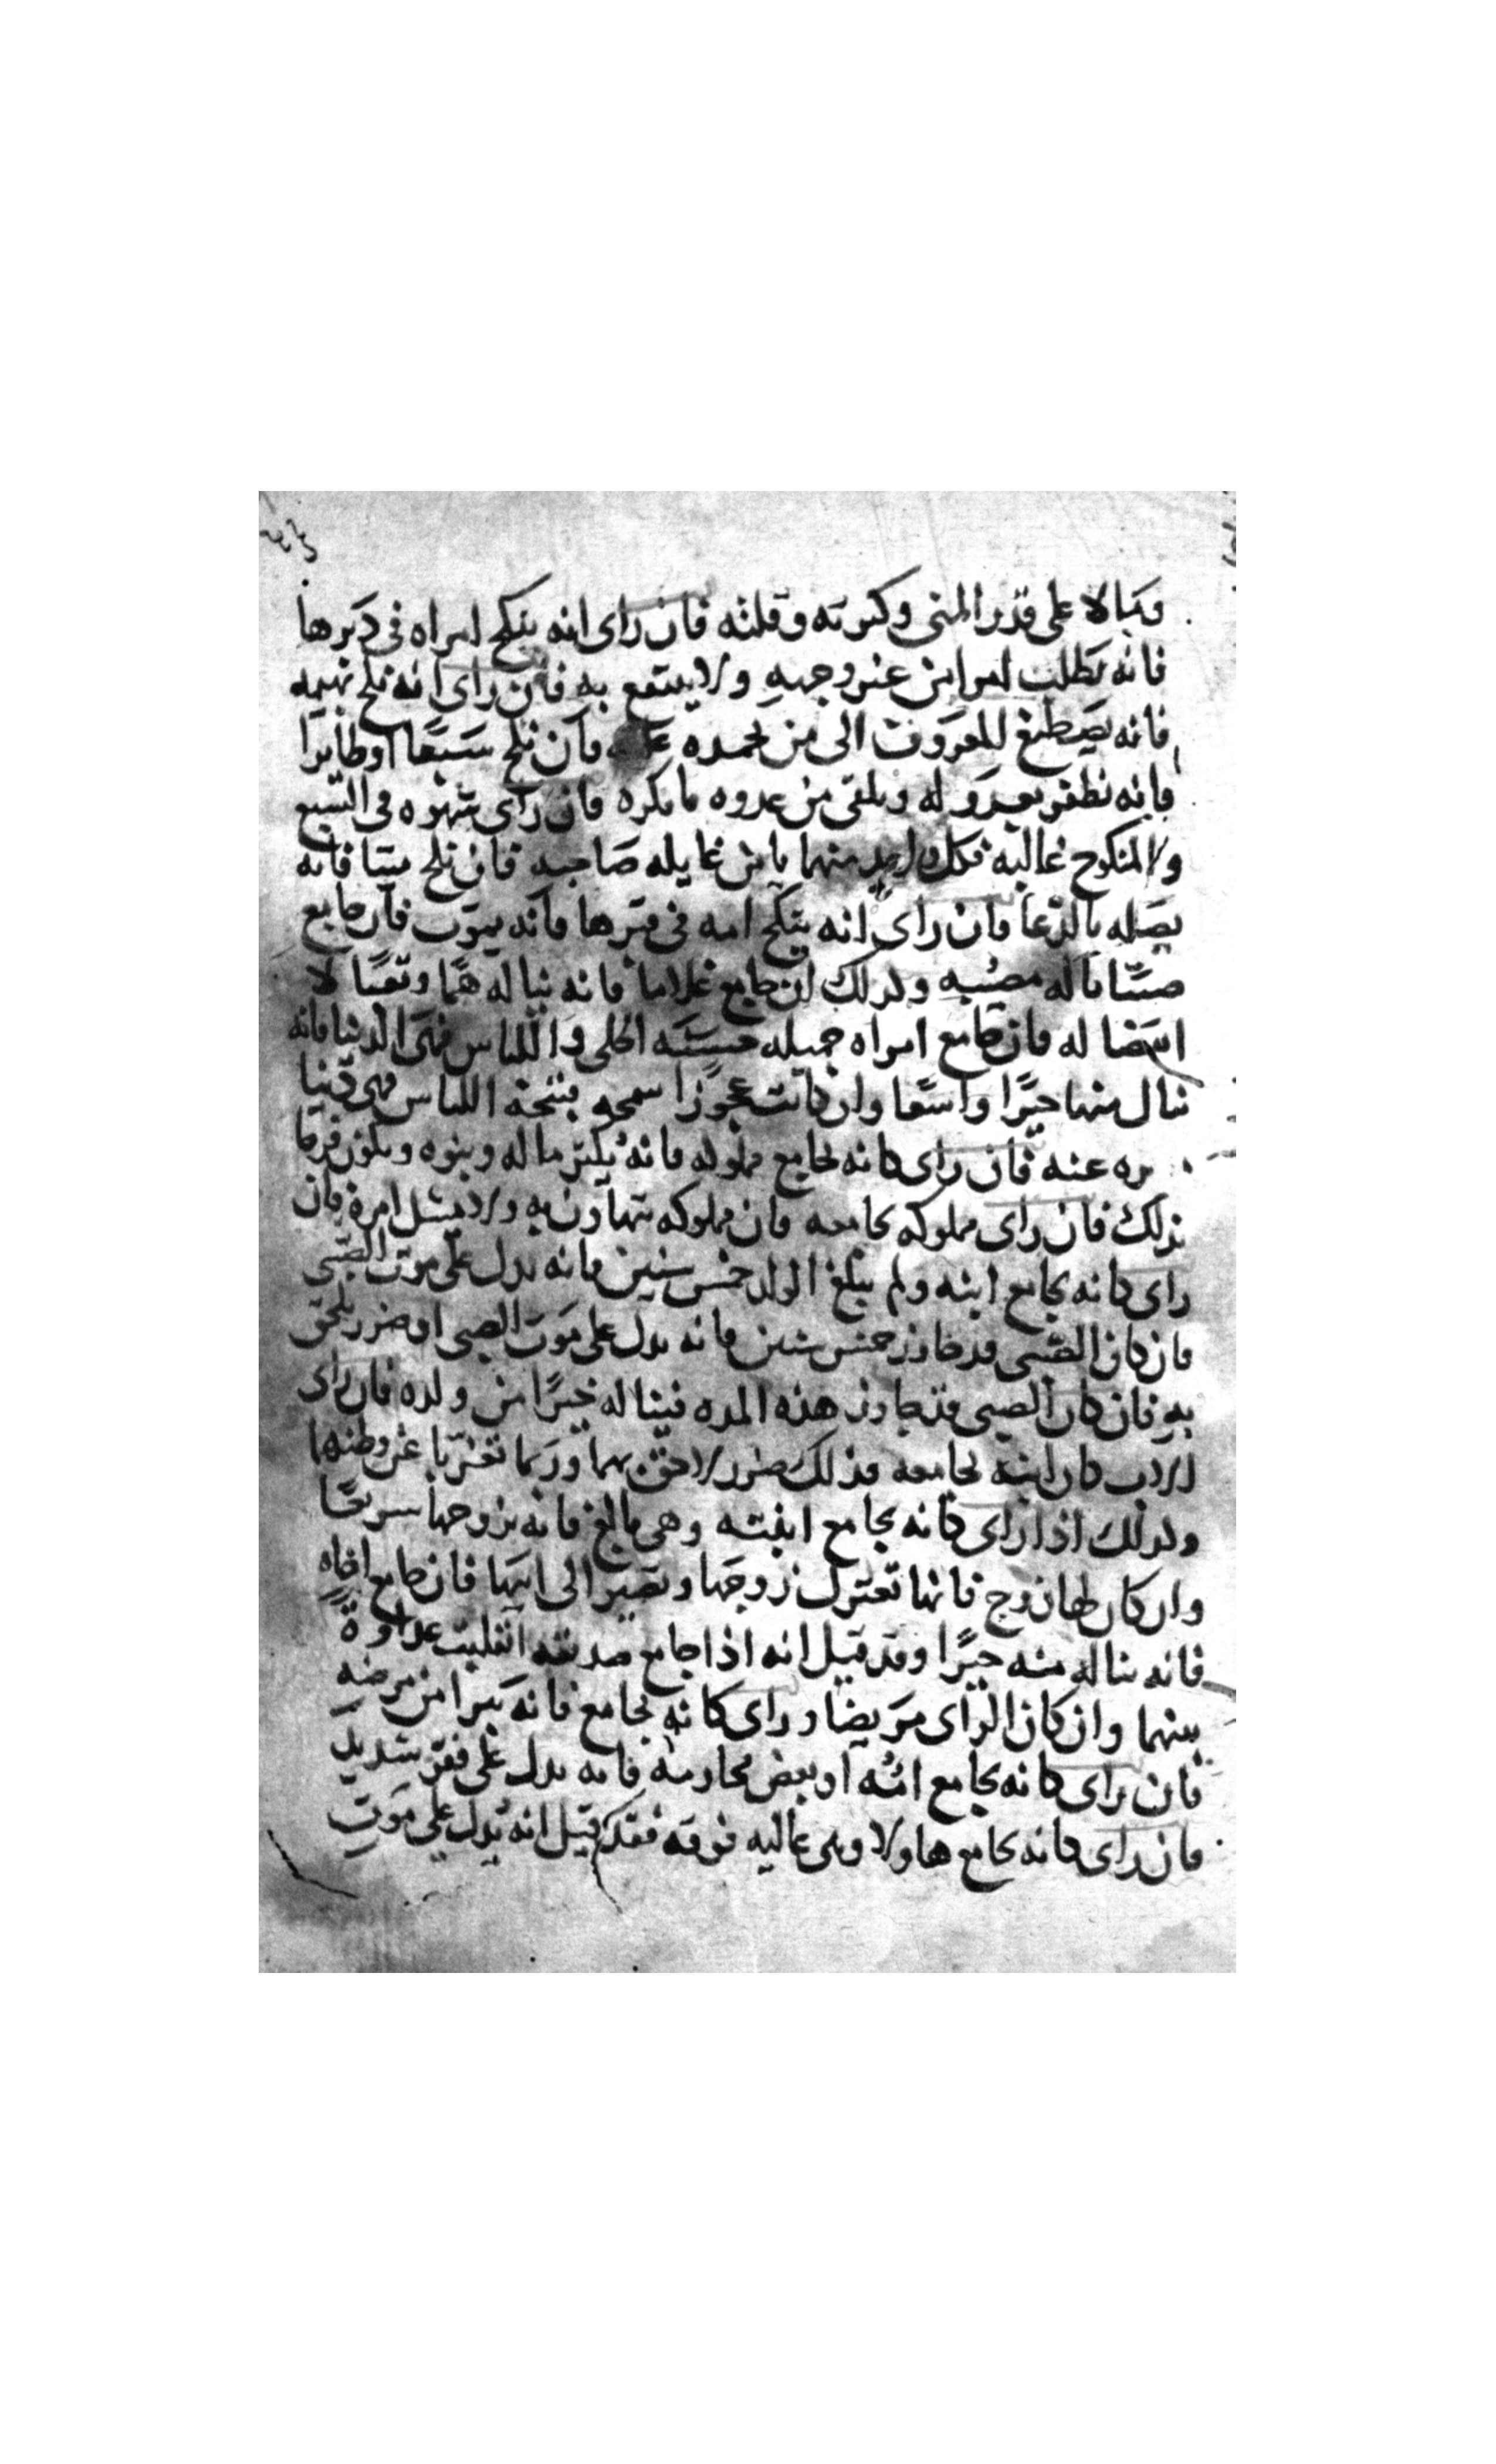 وبالا على قدر المنى وكثرته وقلته فان راى انه ينكح امراه فى دبرها
فانه يطلب امرا من غير وجهه ولا ينتفع به فان راى انه نكح بهيمه
فانه يصطنع المعروف الى من لا يحمده عليه فان نكح سبعا او طايرا
فانه يظفر بعدو له ويلقى من عدوه ما يكره فان راى شهوه فى السبع
والمنكوح غالبه فكل واحد منهما يامن غايله صاحبه فان نكح ميتا فانه
يصله بالدعا فان راى انه ينكح امه فى قبرها فانه يموت فان جامع
صبيا ناله مصيبه وكذلك ان جامع غلاما فانه يناله هما وتعبا لا
انقضا له فان جامع امراه جميله حسنه الحلى واللباس فهى الدنيا فانه
ينال منها خيرا واسعا وان كانت عجوزا سمجه قبيحة اللباس فهى دنيا
مدبره عنه فان راى كانه يجامع مملوكه فانه يكثر ماله وبنوه ويكون فرحا
بذلك فان راى مملوكه يجامعه فان مملوكه يتهاون به ولا يمتثل امره فان
راى كانه يجامع ابنه ولم يبلغ الولد خمس سنين فانه يدل على موت الصبى
فان كان الصبى قد جاوز خمس سنين فانه يدل على موت الصبى او ضرر يلحق
به فان كان الصبى قد جاوز هذه المده فيناله خيرا من ولده فان راى
الاب كان ابنه يجامعه فذلك ضرر لاحق بهما وربما تغربا عن وطنهما
وكذلك اذا راى كانه يجامع ابنته وهى بالغ فانه يزوجها سريعا
وان كان لها زوج فانها تعتزل زوجها وتصير الى ابيها فان جامع اخاه
فانه يناله منه خيرا وقد قيل انه اذا جامع صديقه انقلبت عداوة
بينهما وان كان الراى مريضا وراى كانه يجامع فانه يبرا من مرضه
فان راى كانه يجامع امه او بعض محارمه فانه يدل على فقر شديد
فان راى كانه يجامع هاولا وهى عاليه فوقه فقد قيل انه يدل على موت